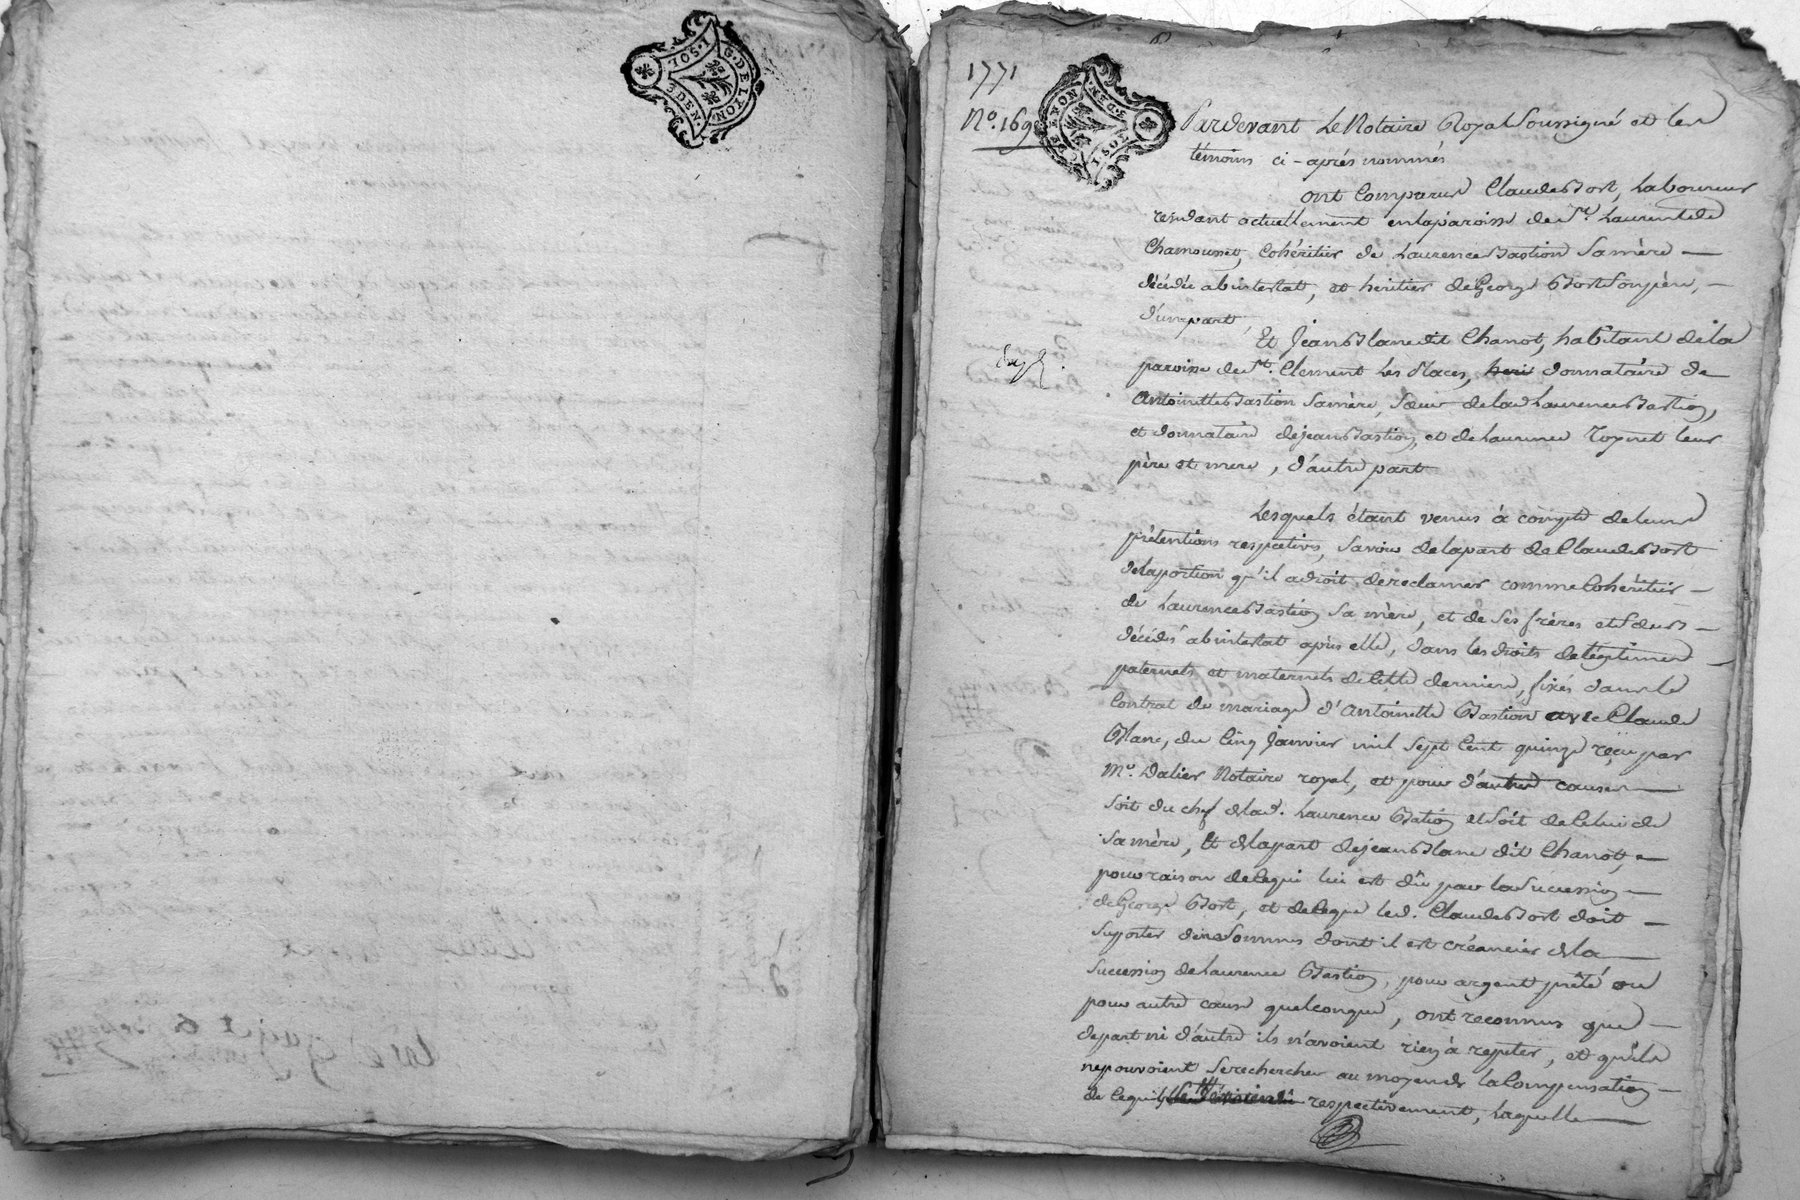 G. DE LYON.
1. SOL.
3 DEN.
1771
No. 169
1 SOL
Pardevant Le Notaire Royal Soussigné et les
témoins ci-après nommés
ont Comparus Claude Bost, Laboureur
residant actuellement en la paroisse de St. Laurent de
Chamousset, Cohéritier de Laurence Bastion Sa mère
décédée abintestat, et héritier de George Bost Son père,
d'une part
Et Jean Blanc dit Chanot, habitant de la
paroisse de St. Clement Les Places, heri donnataire de
Antoinette Bastion Sa mère, Sœur de lad Laurence Bastion,
et donnataire de jean Bastion, et de Laurence leur
père et mere, d'autre part
Lesquels étant venus à compte de leurs
prétentions respectives, Savoir de la part de Claude Bost
de la portion qu'il a droit de reclamer comme Cohéritier
de Laurence Bastion Sa mère, et de Ses frères et Sœurs
décédés abintestat après elle, dans les droits de légitimes
paternels et maternels de Cette derniere, fixés dans le
Contrat de mariage d'Antoinette Bastion avec Claude
Blanc, du Cinq Janvier mil Sept Cent quinze reçu par
Me. Dalier Notaire royal, et pour d'autres causes
Soit du chef de lad. Laurence Bastion et Soit de Celui de
Sa mère, Et de la part de jean Blanc dit Chanot,
pour raison de Ce qui lui est dû par la Succession
de George Bost, et de Ce que led. Claude Bost doit
Suporter des Sommes dont il est créancier de la
Succession de Laurence Bastion, pour argent prêté ou
pour autre cause quelconque, ont reconnus que
de part ni d'autre ils n'avoient rien à repeter, et qu'ils
ne pouvoient Se rechercher au moyen de la Compensation
de Ce qu'ils respectivement, Laquelle